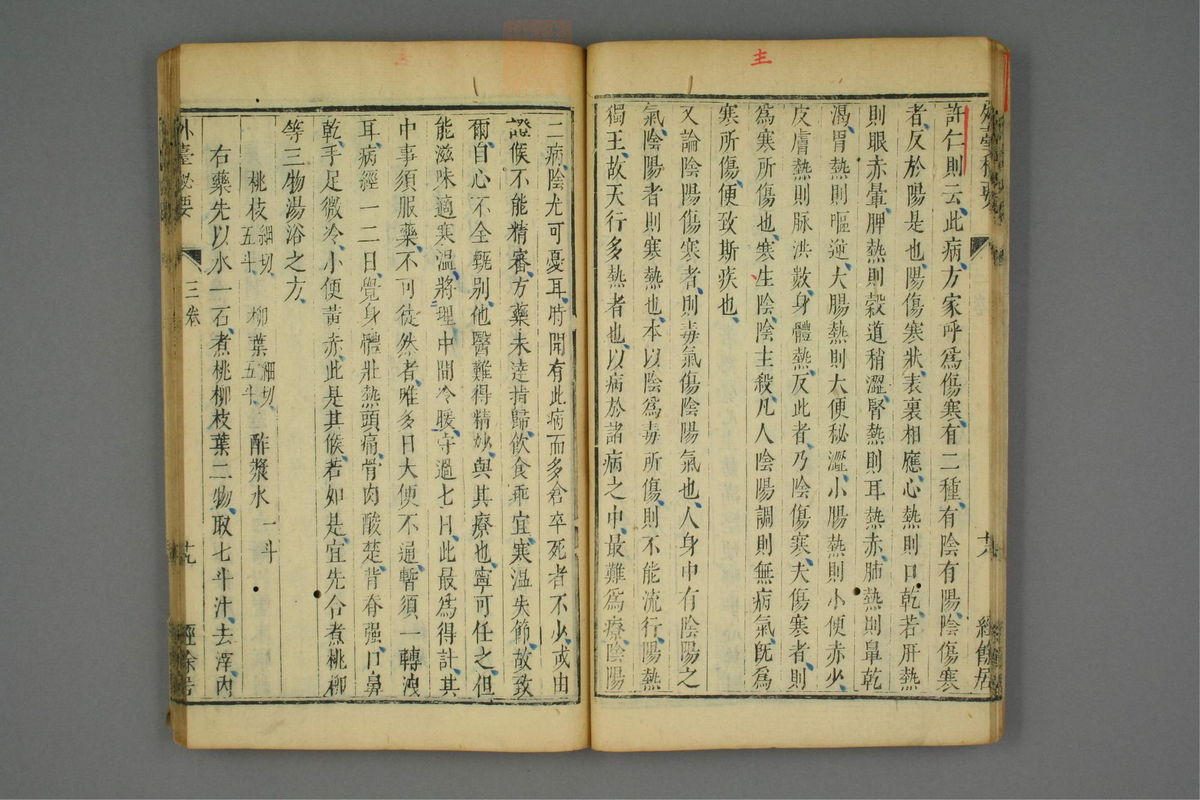 主
外臺秘要
許仁則云此病方家呼爲傷寒有二種有陰有陽陰傷寒
者反於陽是也陽傷寒狀表裏相應心熱則口乾若肝熱
則眼赤暈脾熱則穀道稍澀腎熱則耳熱赤肺熱則鼻乾
渴胃熱則嘔逆大腸熱則大便秘澀小腸熱則小便赤少
皮膚熱則脉洪數身體熱反此者乃陰傷寒夫傷寒者則
爲寒所傷也寒生陰陰主殺凡人陰陽調則無病氣旣爲
寒所傷便致斯疾也
又論陰陽傷寒者則毒氣傷陰陽氣也人身中有陰陽之
氣陰陽者則寒熱也本以陰爲毒所傷則不能流行陽熱
獨王故天行多熱者也以病於諸病之中最難爲療陰陽
二病陰尤可憂耳時開有此病而多倉卒死者不少或由
證候不能精審方藥未達指歸飲食乖宜寒溫失節故致
爾自心不全甄別他醫難得精妙與其療也寧可任之但
能滋味適寒溫將理中間冷暖守過七日此最爲得計其
中事須服藥不可徒然者唯多日大便不通暫須一轉洩
耳病經一二日覺身體壯熱頭痛骨肉酸楚背脊强口鼻
乾手足微冷小便黃赤此是其候若如是宜先合煮桃柳
等三物湯浴之方
桃枝細切五斗 柳葉細切五斗 酢漿水一斗
右藥先以水一石煮桃柳枝葉二物取七斗汁去滓內
外臺秘要 三卷 經餘居